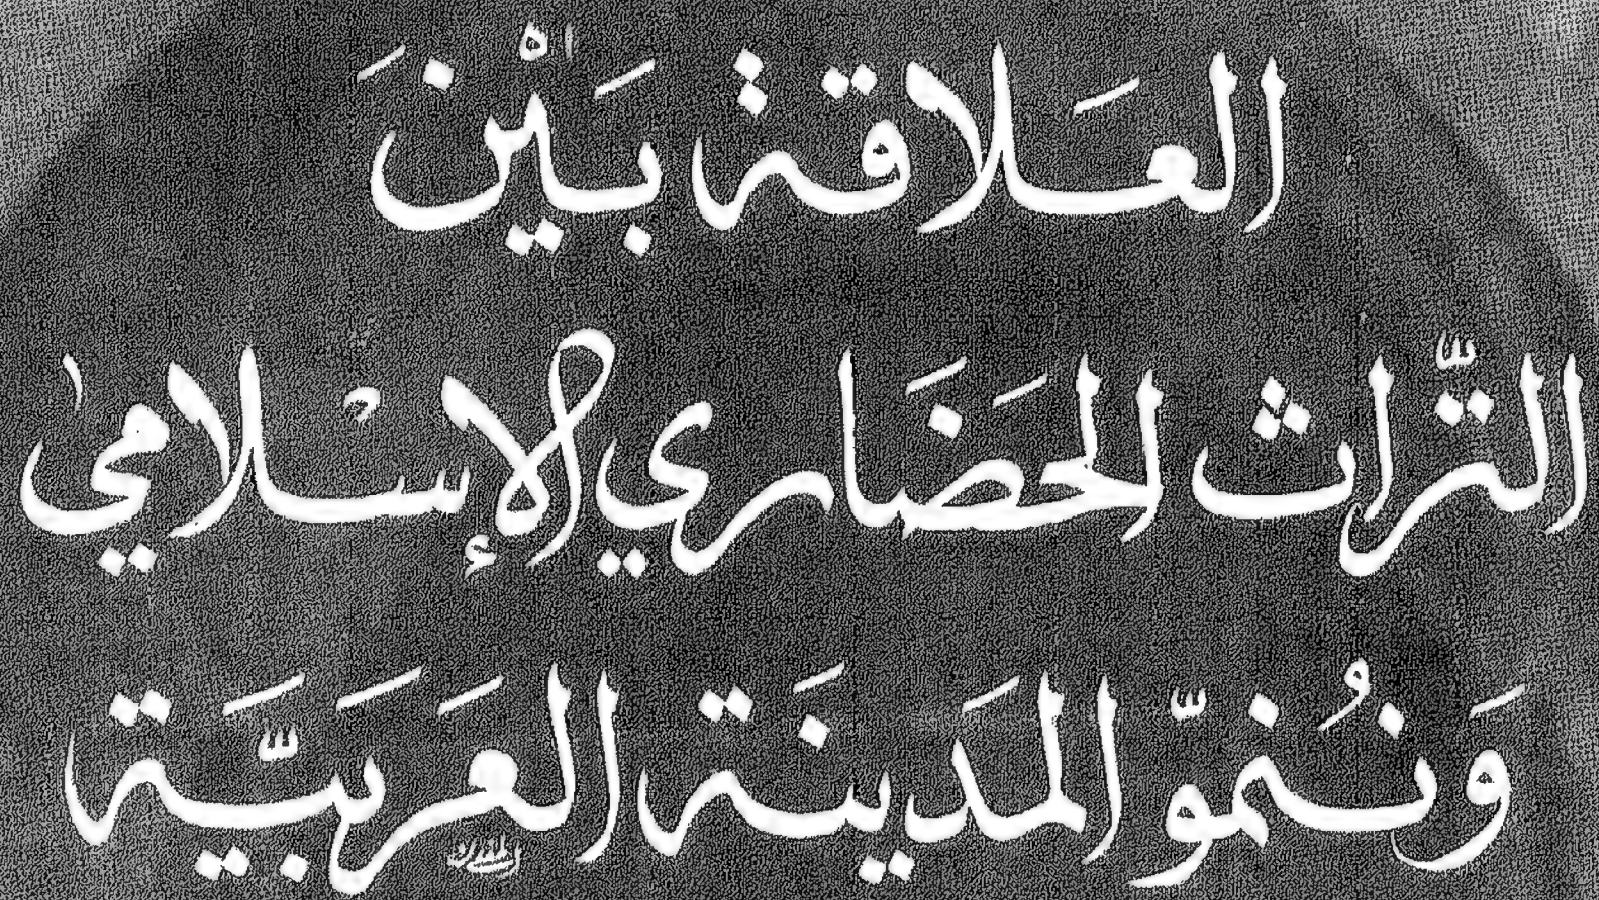 العَلاقة بَيْنَ
التّراث الحَضَاري الإسْلامي
وَنُنموّ المَدينَة العَرَبيَّة